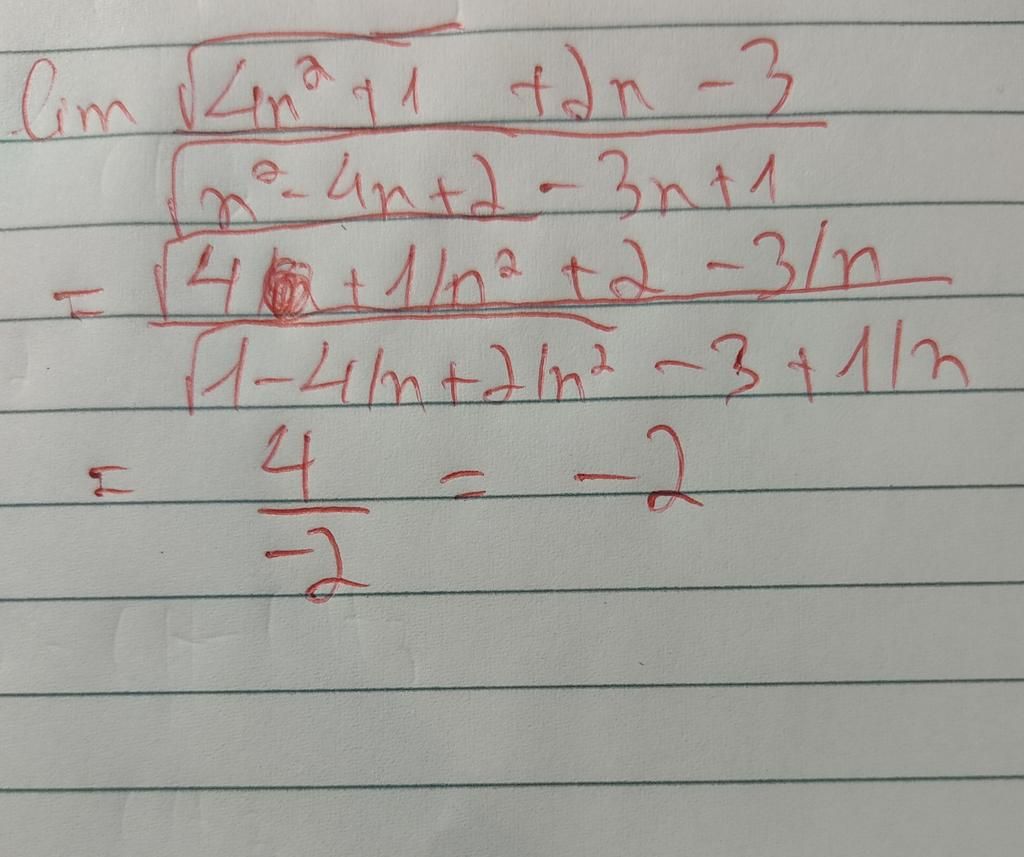 lim √(4n² + 1) + 2n - 3
√(n² - 4n + 2) - 3n + 1
= √(4 + 1/n²) + 2 - 3/n
√(1 - 4/n + 2/n²) - 3 + 1/n
= 4/-2 = -2